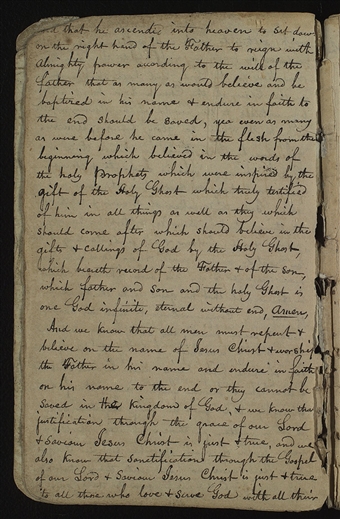 that he ascended into heaven to set down
on the right hand of the Father to reign with
almighty power according to the will of the
father that as many as would believe and be
baptized in his name & endure in faith to
the end should be saved, yea even as many
as were before he came in the flesh from the
beginning which believed in the words of
the holy Prophets which were inspired by the
gift of the Holy Ghost which truly testified
of him in all things as well as they which
should come after which should believe in the
gifts & callings of God by the Holy Ghost,
which beareth record of the Father & of the Son,
which father and son and the holy Ghost is
one God infinite, eternal without end, Amen,
And we know that all men must repent &
believe on the name of Jesus Christ & worship
the Father in his name and endure in faith
on his name to the end or they cannot be
saved in the Kingdom of God, & we know that
justification through the grace of our Lord
& Saviour Jesus Christ is just & true, and we
also know that sanctification through the Gospel
of our Lord & Saviour Jesus Christ is just & true
to all those who love & serve God with all their